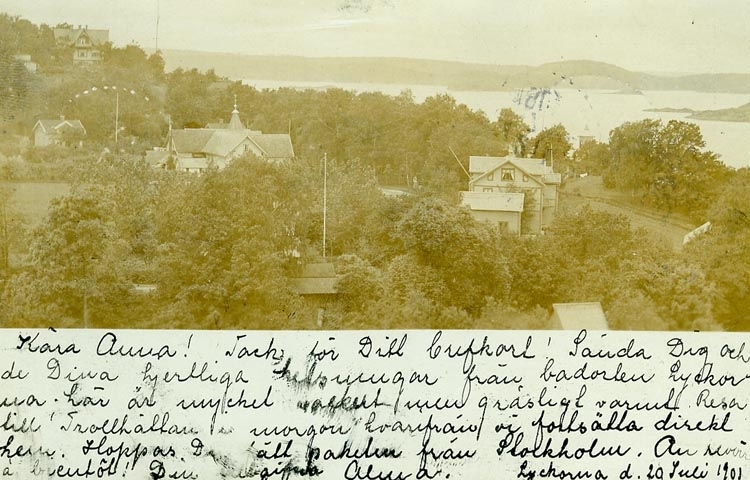 Kära Anna! Tack för Ditt brefkort! Sända Dig och
de Dina hjertliga helsningar från badorten Lyckor
na. här är mycket vackert men gräsligt varmt. Resa
till Trollhättan i morgon hvarifrån vi fortsätta direkt
hem. Hoppas Du fått paketen från Stockholm. Au revoir
à bientôt! Din Alma. Lyckorna d. 20 Juli 1901